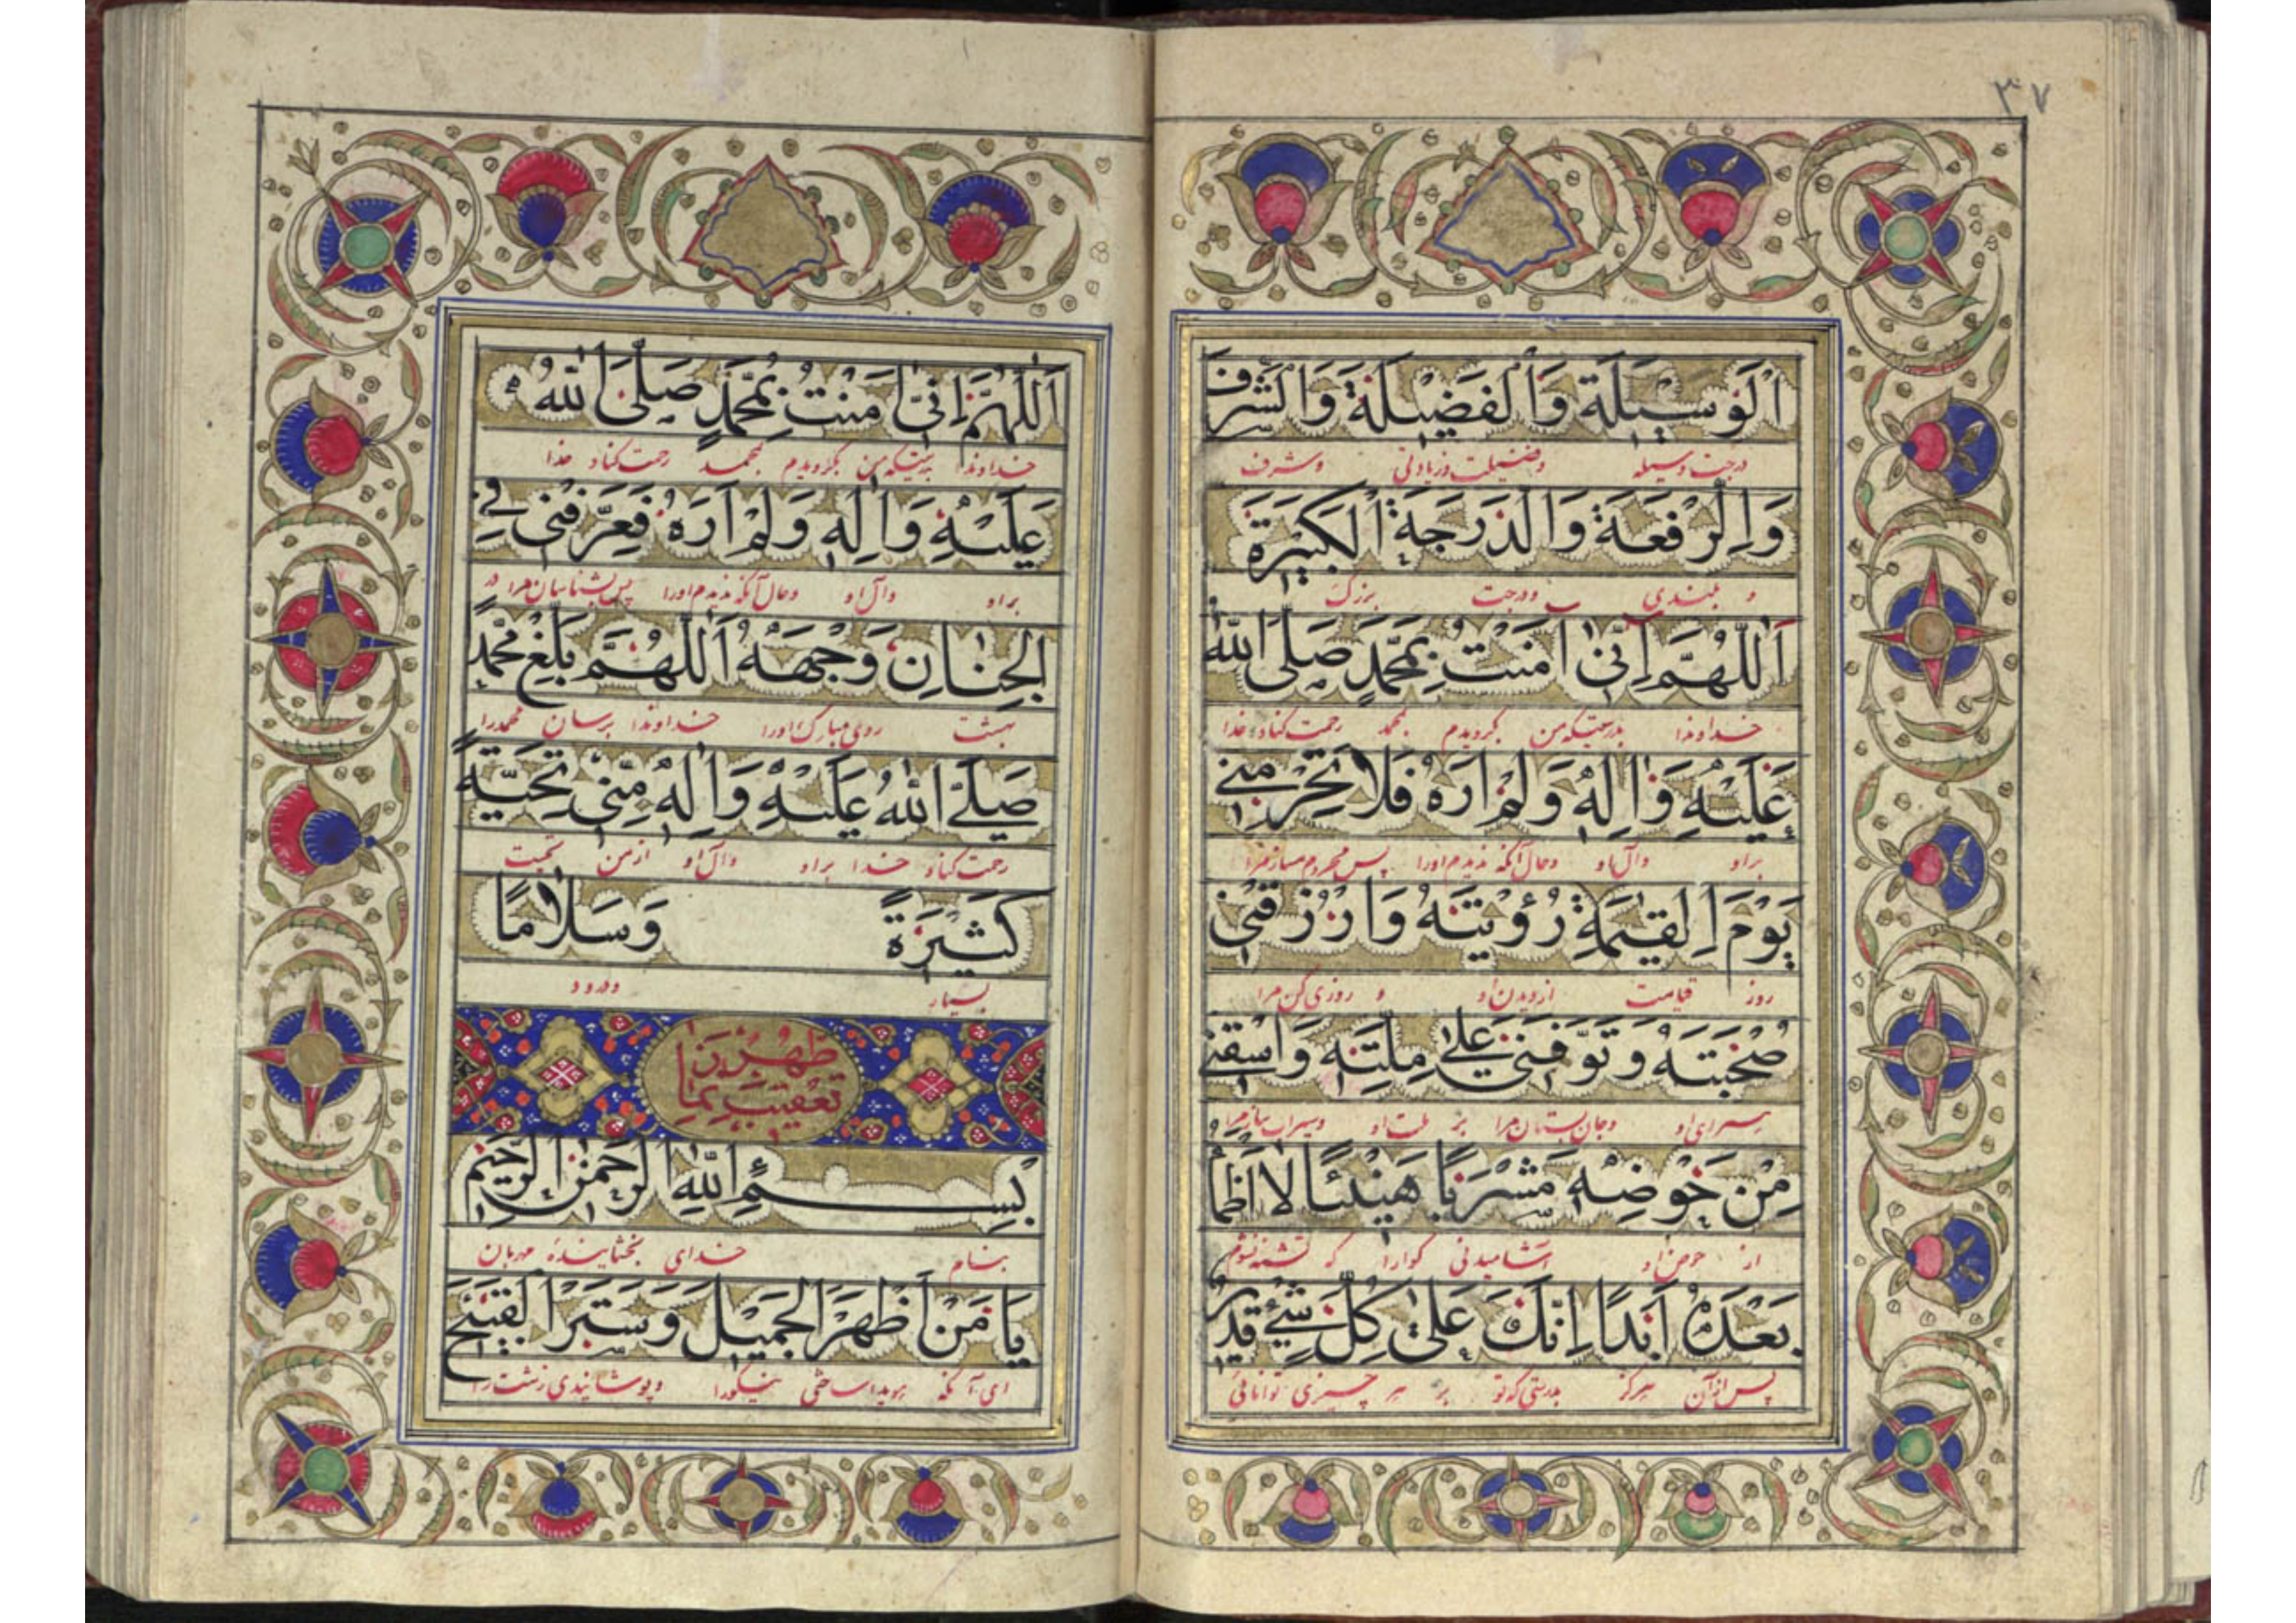 ٣٧
اَلْوَسيلَةَ وَالْفَضيلَةَ وَالشَّرَفَ
درجت وسیله وفضیلت وزیادتی وشرف
وَالرِّفْعَةَ وَالدَّرَجَةَ الْكَبيرَةَ
و بلندی ودرجت بزرگ
اَللّهُمَّ اِنّى امَنْتُ بِمُحَمَّدٍ صَلَّى اللّهُ
خداوندا بدرستیکه من گرویدم بمحمد رحمت کناد خدا
عَلَيْهِ وَالِهِ وَلَمْ اَرَهُ فَلا تَحْرِمْنى
براو وآل او وحال آنکه ندیدم اورا پس محروم مساز مرا
يَوْمَ الْقِيمَةِ رُؤْيَتَهُ وَارْزُقْنى
روز قیامت ازدیدن او و روزی کن مرا
صُحْبَتَهُ وَتَوَفَّنى عَلى مِلَّتِهِ وَاسْقِنى
همسرای او وجان بستان مرا بر ملت او وسیراب ساز مرا
مِنْ حَوْضِهِ مَشْرَبًا هَنيئًا لا اَظْمَأُ
از حوض او آشامیدنی گوارا که تشنه نشوم
بَعْدَهُ اَبَدًا اِنَّكَ عَلى كُلِّ شَىْءٍ قَديرٌ
پس ازآن هرگز بدرستی که تو بر هر چیزی توانائی
اَللّهُمَّ اِنّى امَنْتُ بِمُحَمَّدٍ صَلَّى اللّهُ
خداوندا بدرستیکه من گرویدم بمحمد رحمت کناد خدا
عَلَيْهِ وَالِهِ وَلَمْ اَرَهُ فَعَرِّفْنى فِى
براو وآل او وحال آنکه ندیدم اورا پس بشناسان مرا در
الْجِنانِ وَجْهَهُ اَللّهُمَّ بَلِّغْ مُحَمَّدًا
بهشت روی مبارک اورا خداوندا برسان محمدرا
صَلَّى اللّهُ عَلَيْهِ وَالِهِ مِنّى تَحِيَّةً
رحمت کناد خدا براو وآل او ازمن تحیت
كَثيرَةً وَسَلامًا
بسیار ودرود
ظهر زن
تعقیب نما
بِسْمِ اللّهِ الرَّحْمنِ الرَّحيمِ
بنام خدای بخشاینده مهربان
يا مَنْ اَظْهَرَ الْجَميلَ وَسَتَرَ الْقَبيحَ
ای آنکه هویدا ساختی نیکورا وپوشانیدی زشت را